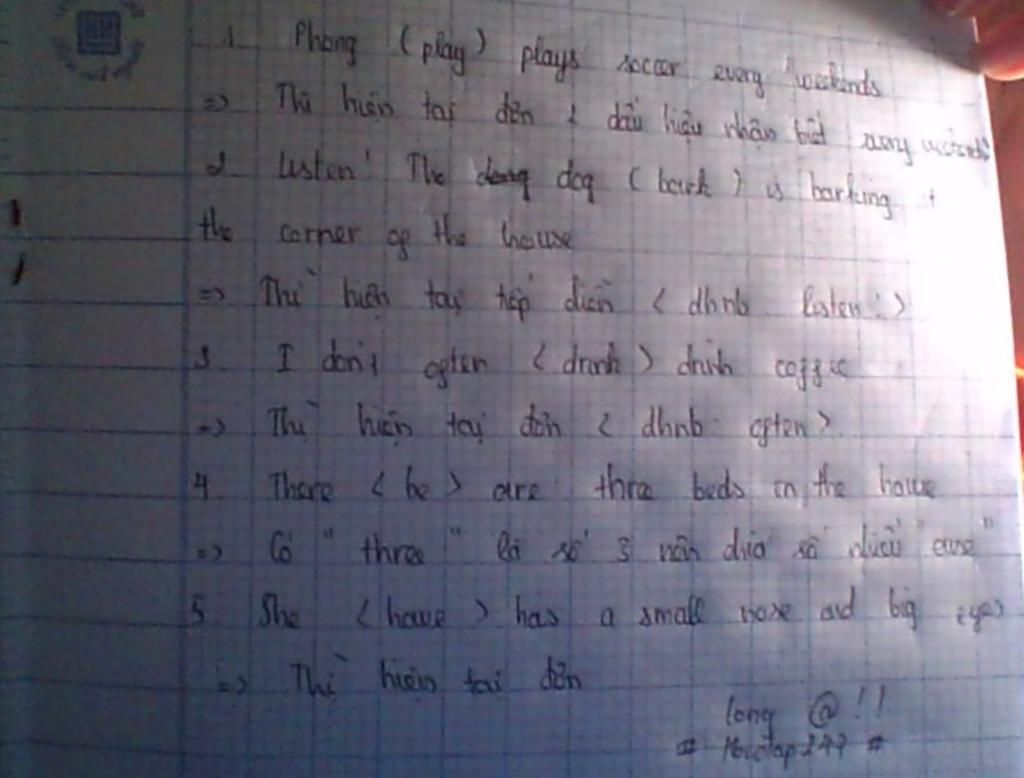 1 Phong (play) plays soccer every weekends
=> Thì hiện tại đơn ( dấu hiệu nhận biết every weekends
2 Listen! The dog (bark) is barking
the corner of the house
=> Thì hiện tại tiếp diễn (dhnb listen!)
3 I don't often (drink) drink coffee
=> Thì hiện tại đơn (dhnb often)
4 There (be) are three beds in the house
=> Có "three" là số 3 nên chia số nhiều "are"
5 She (have) has a small nose and big eyes
=> Thì hiện tại đơn
long @!!
# Hoctap247 #